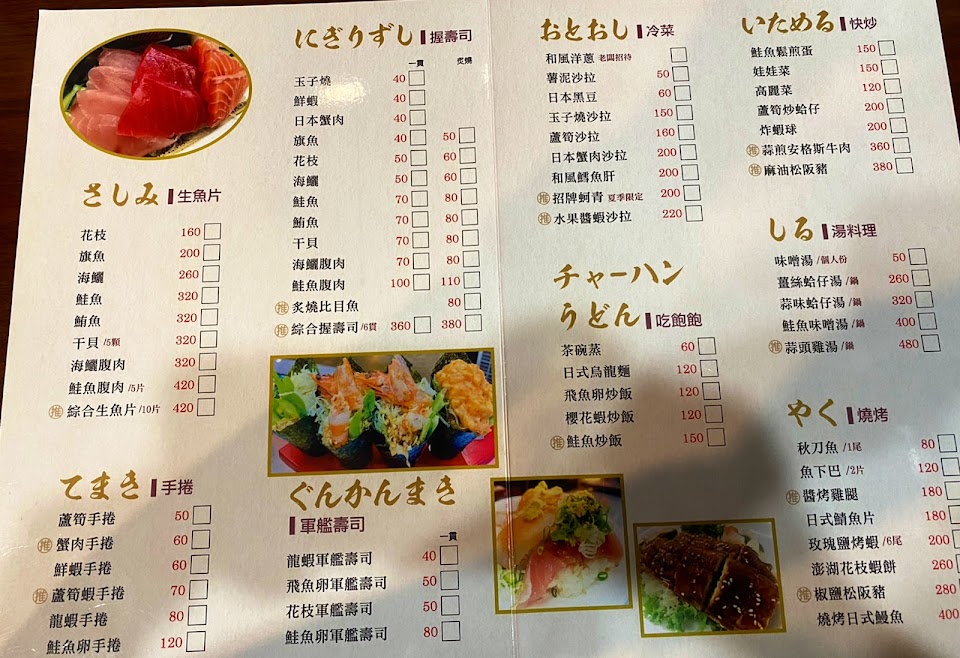 さしみ 生魚片
花枝 160
旗魚 200
海鱺 260
鮭魚 320
鮪魚 320
干貝/5顆 320
海鱺腹肉 320
鮭魚腹肉/5片 420
推 綜合生魚片/10片 420
てまき 手捲
蘆筍手捲 50
推 蟹肉手捲 60
鮮蝦手捲 60
推 蘆筍蝦手捲 70
龍蝦手捲 80
鮭魚卵手捲 120
にぎりずし 握壽司
一貫 炙燒
玉子燒 40
鮮蝦 40
日本蟹肉 40
旗魚 40 50
花枝 50 60
海鱺 50 60
鮭魚 70 80
鮪魚 70 80
干貝 70 80
海鱺腹肉 70 80
鮭魚腹肉 100 110
推 炙燒比目魚 80
推 綜合握壽司/6貫 360 380
ぐんかんまき
軍艦壽司
一貫
龍蝦軍艦壽司 40
飛魚卵軍艦壽司 50
花枝軍艦壽司 50
鮭魚卵軍艦壽司 80
おとおし 冷菜
和風洋蔥 老闆招待
薯泥沙拉 50
日本黑豆 60
玉子燒沙拉 150
蘆筍沙拉 160
日本蟹肉沙拉 200
和風鱈魚肝 200
推 招牌蚵青 夏季限定 200
推 水果醬蝦沙拉 220
チャーハン
うどん 吃飽飽
茶碗蒸 60
日式烏龍麵 120
飛魚卵炒飯 120
櫻花蝦炒飯 120
推 鮭魚炒飯 150
いためる 快炒
鮭魚鬆煎蛋 150
娃娃菜 150
高麗菜 120
蘆筍炒蛤仔 200
炸蝦球 200
推 蒜煎安格斯牛肉 360
推 麻油松阪豬 380
しる 湯料理
味噌湯/個人份 50
薑絲蛤仔湯/鍋 260
蒜味蛤仔湯/鍋 320
鮭魚味噌湯/鍋 400
推 蒜頭雞湯/鍋 480
やく 燒烤
秋刀魚/1尾 80
魚下巴/2片 120
推 醬烤雞腿 180
日式鯖魚片 180
玫瑰鹽烤蝦/6尾 200
澎湖花枝蝦餅 260
推 椒鹽松阪豬 280
燒烤日式鰻魚 400